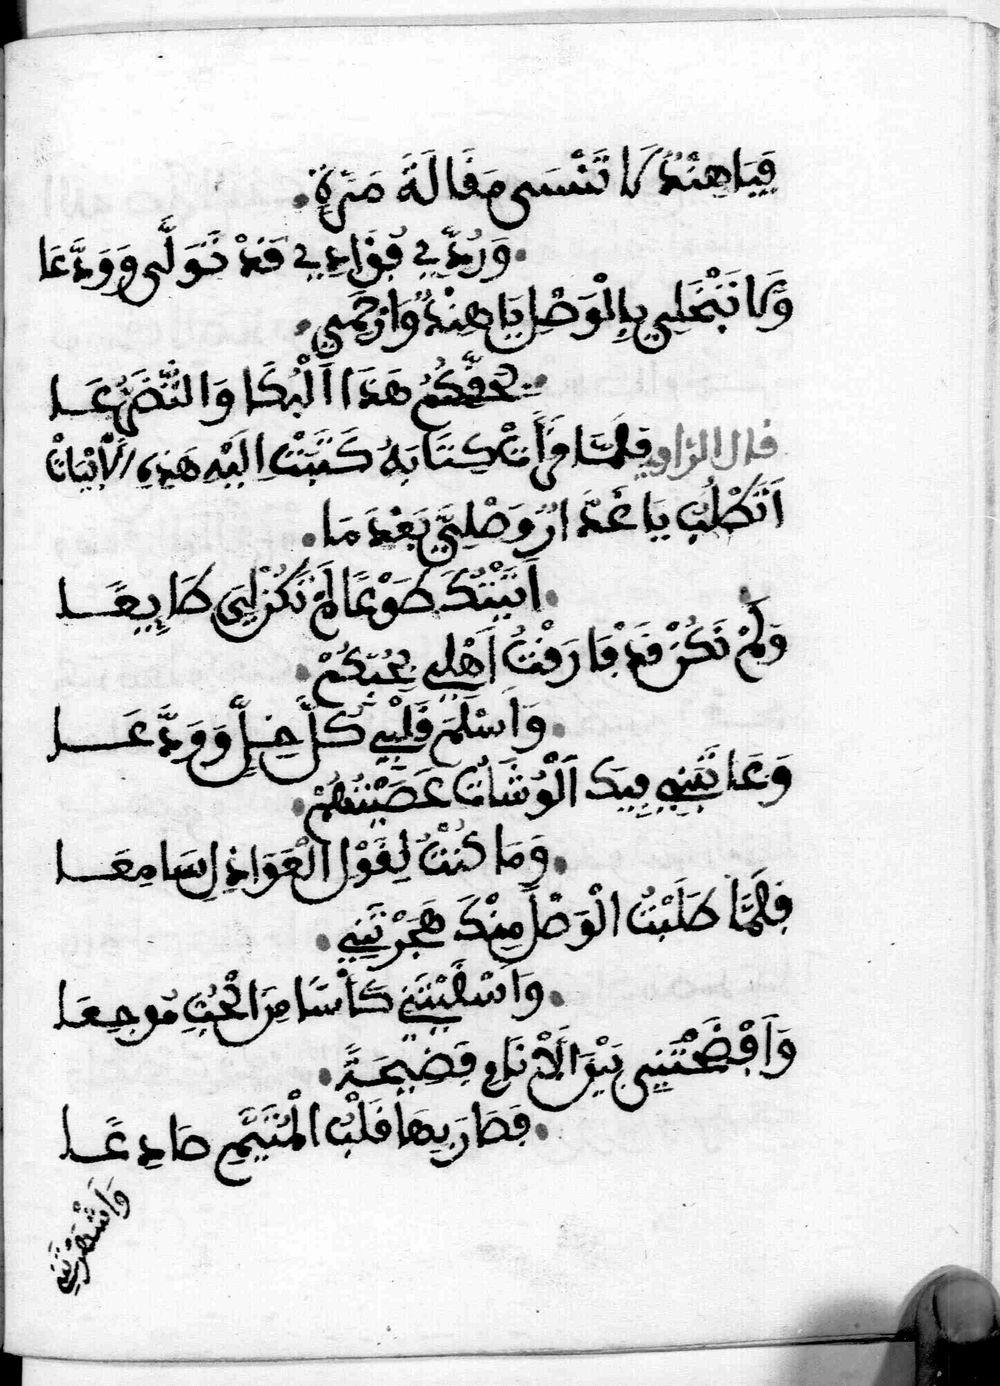 فَيَا هِنْدُ لَا تَنْسَى مَقَالَةَ مَرَّةٍ
وَرُدِّي فُؤَادِي قَدْ تَوَلَّى وَوَدَّعَا
وَلَا تَبْخَلِي بِالْوَصْلِ يَا هِنْدُ وَارْحَمِي
بِحَقِّكُمْ هَذَا الْبُكَا وَالتَّضَرُّعَا
قال الراوي فَلَمَّا قَرَأَتْ كِتَابَهُ كَتَبَتْ اِلَيْهِ هَذِهِ الْأَبْيَاتْ
اَتَطْلُبُ يَا غَدَّارُ وَصْلِيَ بَعْدَ مَا
اَتَيْتُكَ طَوْعًا لَمْ تَكُنْ لِيَ طَايِعَا
وَلَمْ تَكُنْ قَدْ فَارَقْتُ اَهْلِي بِحُبِّكُمْ
وَاَسْلَمَ قَلْبِي كُلَّ خِلٍّ وَوَدَّعَا
وَعَاتَبَنِي فِيكَ الْوُشَاتُ عَصَيْتُهُمْ
وَمَا كُنْتُ لِقَوْلِ الْعَوَاذِلِ سَامِعَا
فَلَمَّا طَلَبْتُ الْوَصْلَ مِنْكَ هَجَرْتَنِي
وَاَسْقَيْتَنِي كَأْسًا مِنَ الْحُبِّ مُوجِعَا
وَاَفْضَحْتَنِي بَيْنَ الْأَنَامِ فَضِيحَةً
فَصَارَ بِهَا قَلْبُ الْمُتَيَّمِ صَادِعَا
وَاَشْهَرْتَنِي